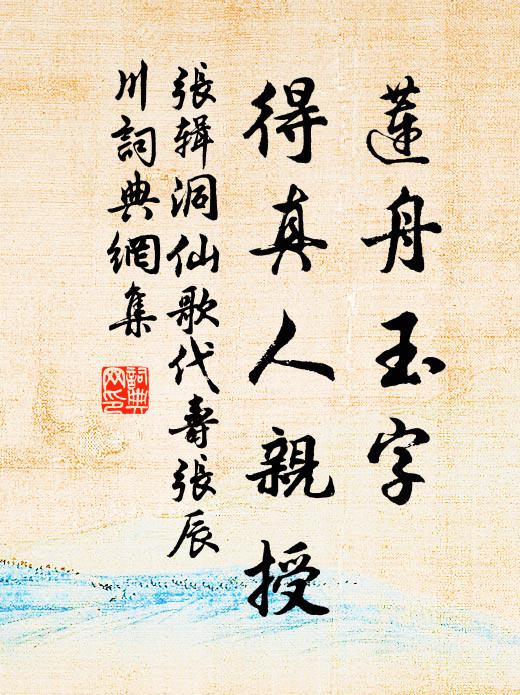 蓮舟玉字
得真人親授
張辑洞仙歌代壽張辰
川詞典網集
詞典网印